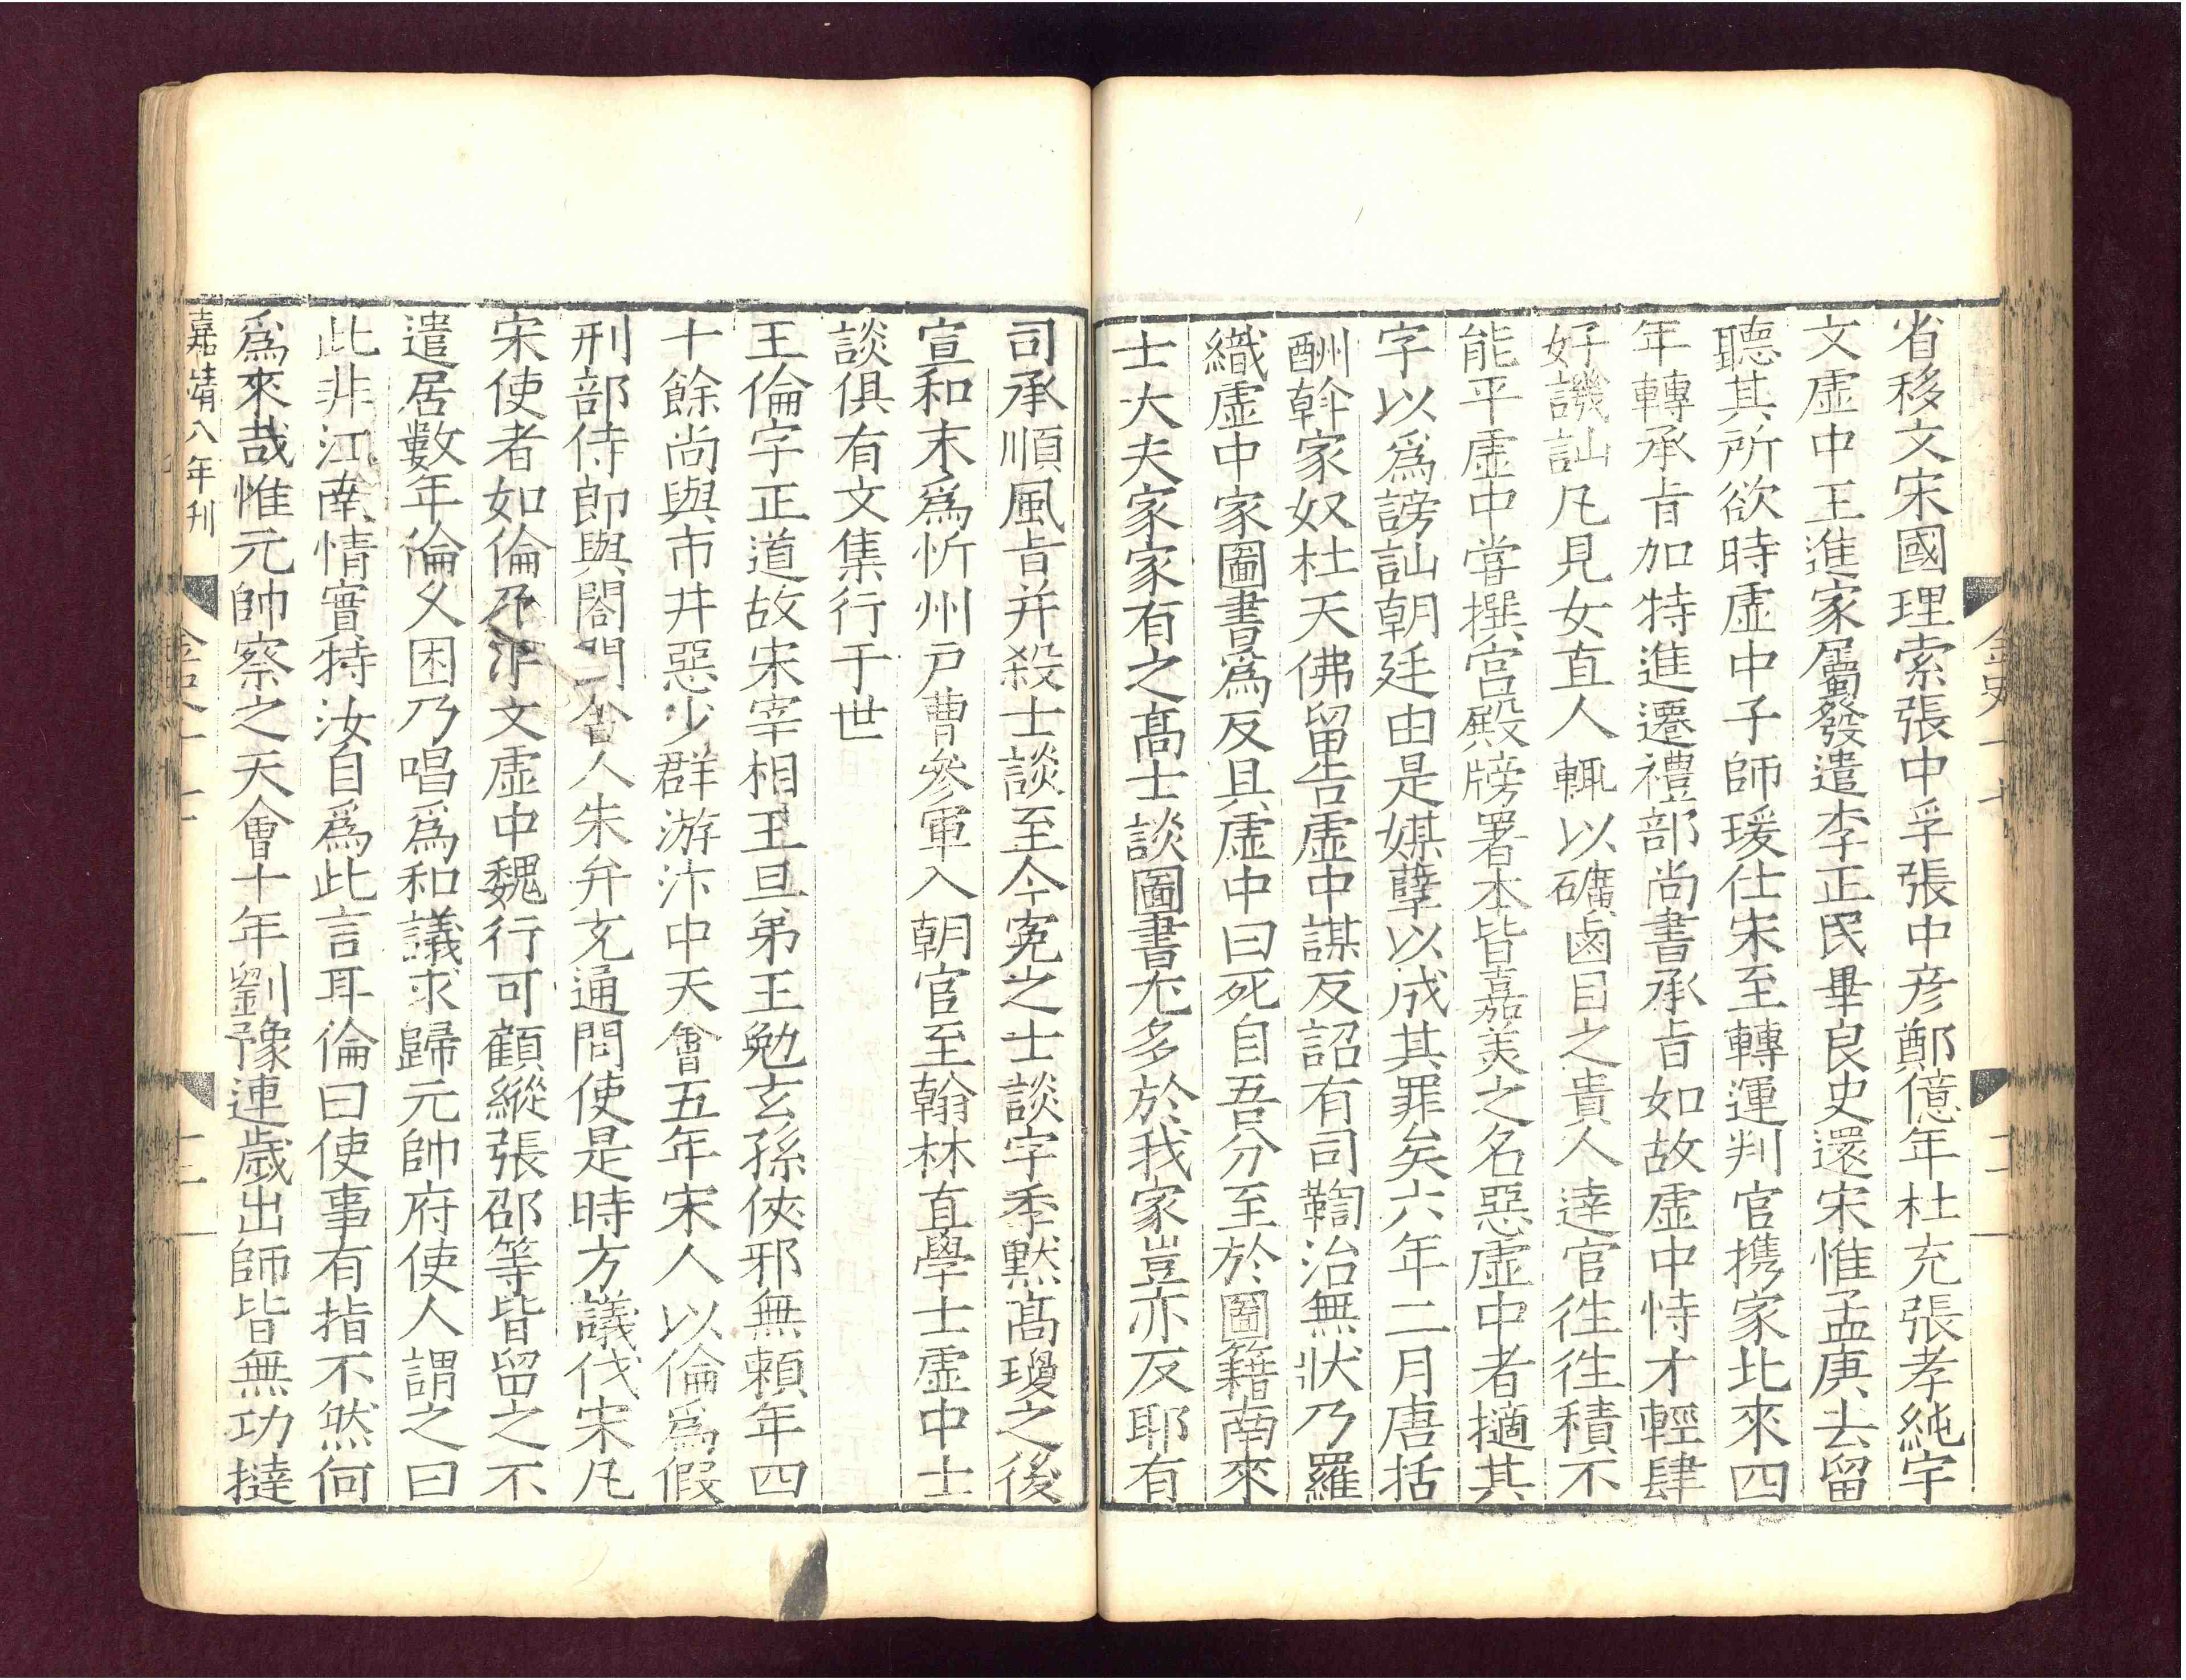 省移文宋國理索張中孚張中彥鄭億年杜充張孝純宇
文虛中王進家屬發遣李正民畢良史還宋惟孟庾去留
聽其所欲時虛中子師瑗仕宋至轉運判官携家北來四
年轉承旨加特進遷禮部尚書承旨如故虛中恃才輕肆
好譏訕凡見女直人輒以礦鹵目之貴人達官徃徃積不
能平虛中甞撰宮殿牓署本皆嘉美之名惡虛中者擿其
字以爲謗訕朝廷由是媒糵以成其罪矣六年二月唐括
酬斡家奴杜天佛留告虛中謀反詔有司鞫治無狀乃羅
織虛中家圖書爲反具虛中曰死自吾分至於圖籍南來
士大夫家家有之高士談圖書尤多於我家豈亦反耶有
司承順風旨并殺士談至今寃之士談字季默髙瓊之後
宣和末爲忻州戶曹參軍入朝官至翰林直學士虛中士
談俱有文集行于世
王倫字正道故宋宰相王旦弟王勉玄孫俠邪無頼年四
十餘尚與市井惡少群游汴中天會五年宋人以倫爲假
刑部侍郎與閤門舍人朱弁充通問使是時方議伐宋凡
宋使者如倫及宇文虛中魏行可顧縱張邵等皆留之不
遣居數年倫久困乃唱爲和議求歸元帥府使人謂之曰
此非江南情實特汝自爲此言耳倫曰使事有指不然何
爲來哉惟元帥察之天會十年劉豫連歲出師皆無功撻
嘉靖八年刊